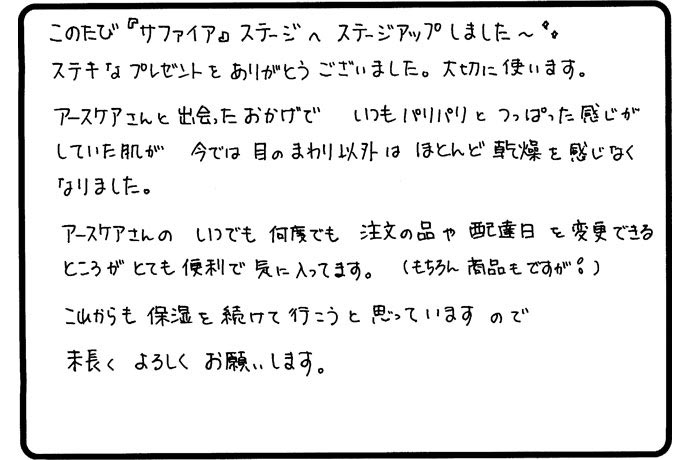 このたび『サファイア』ステージへ ステージアップしました～
ステキなプレゼントをありがとうございました。大切に使います。
アースケアさんと出会ったおかげで いつもパリパリとつっぱった感じが
していた肌が 今では目のまわり以外はほとんど乾燥を感じなく
なりました。
アースケアさんの いつでも何度でも 注文の品や配達日を変更できる
ところがとても便利で気に入ってます。（もちろん商品もですが!）
これからも保湿を続けて行こうと思っていますので
末長くよろしくお願いします。